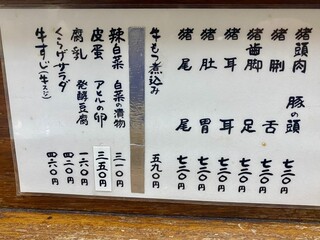 猪頭肉 豚の頭 七三〇円
猪脷 舌 七三〇円
猪歯脚 足 七三〇円
猪耳 耳 七三〇円
猪肚 胃 七三〇円
猪尾 尾 七三〇円
牛もつ煮込み 五九〇円
辣白菜 白菜の漬物 三一〇円
皮蛋 アヒルの卵 三五〇円
腐乳 発酵豆腐 一六〇円
くらげサラダ 四二〇円
牛すじ(牛スジ) 四六〇円